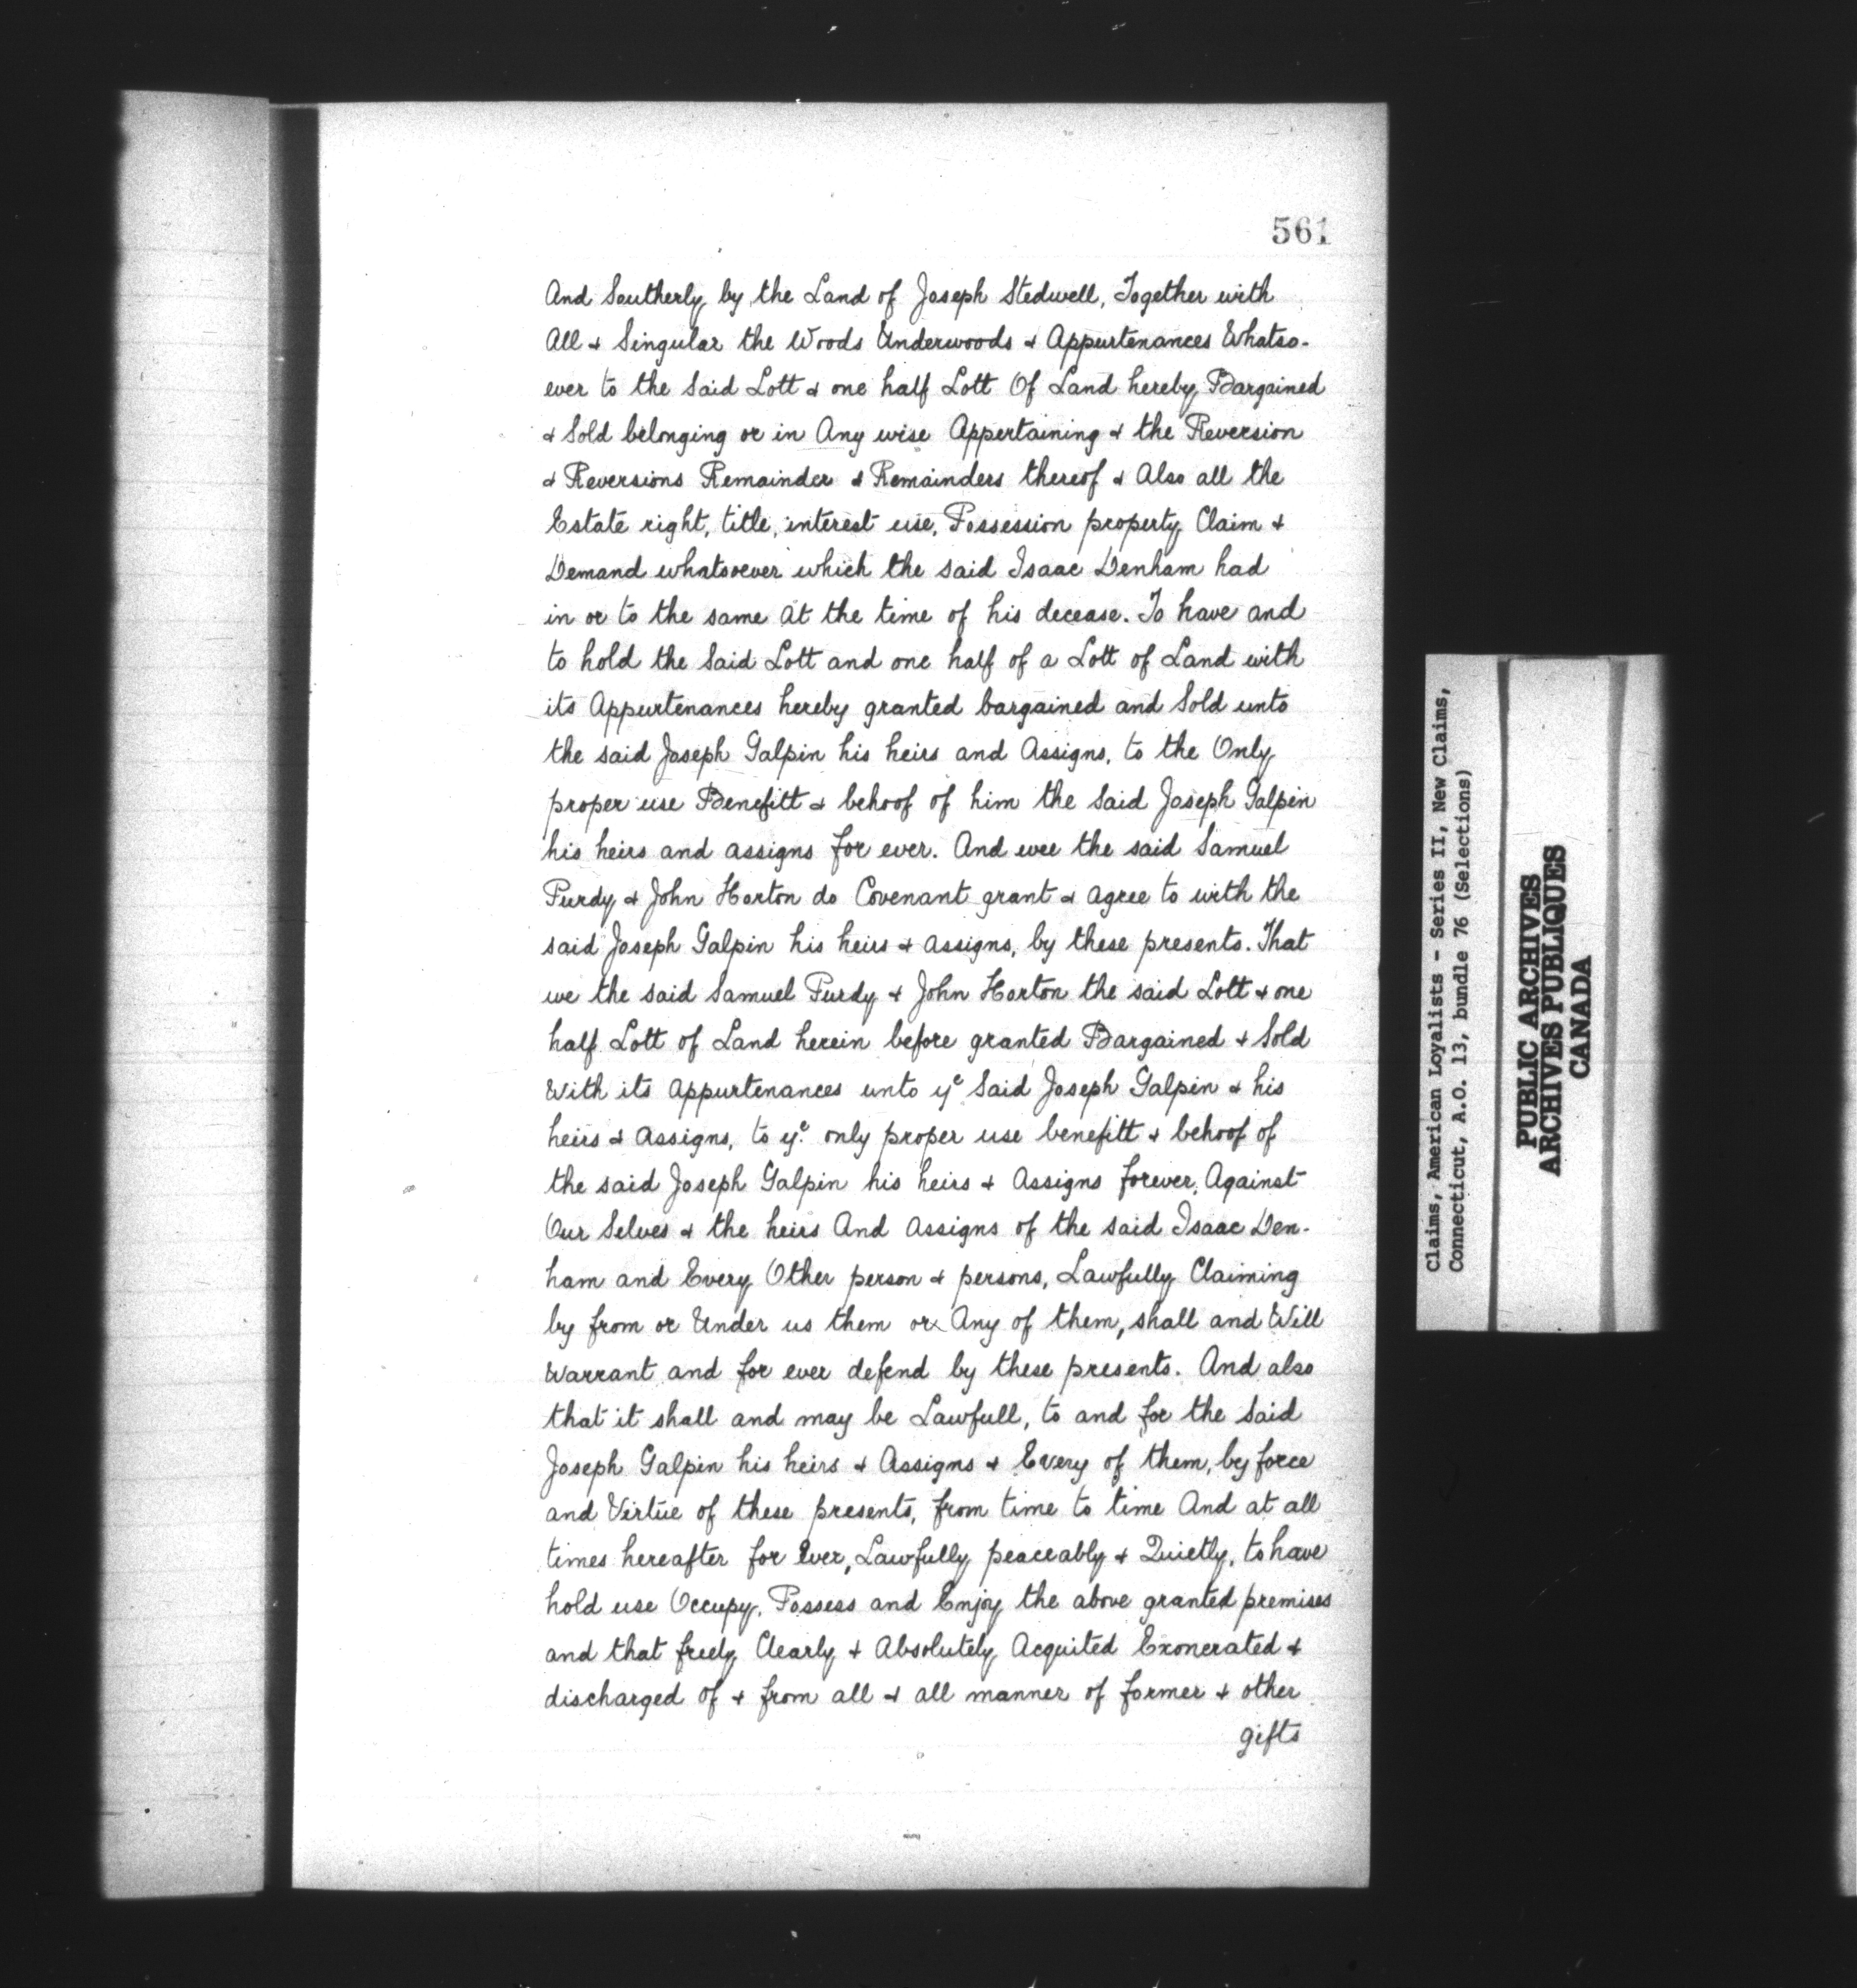 561
And Southerly by the Land of Joseph Stedwell, Together with
All & Singular the Woods Underwoods & Appurtenances Whatso-
ever to the Said Lott & one half Lott Of Land hereby Bargained
& Sold belonging or in Any wise Appertaining & the Reversion
& Reversions Remainder & Remainders thereof & Also all the
Estate right, title, interest use, Possession property Claim &
Demand whatsoever which the said Isaac Denham had
in or to the same At the time of his decease. To have and
to hold the Said Lott and one half of a Lott of Land with
its Appurtenances hereby granted bargained and Sold unto
the said Joseph Galpin his heirs and Assigns, to the Only
proper use Benefitt & behoof of him the Said Joseph Galpin
his heirs and assigns for ever. And wee the said Samuel
Purdy & John Horton do Covenant grant & agree to with the
said Joseph Galpin his heirs & assigns, by these presents. That
we the said Samuel Purdy & John Horton the said Lott & one
half Lott of Land herein before granted Bargained & Sold
With its appurtenances unto ye Said Joseph Galpin & his
heirs & Assigns, to ye. only proper use benefitt & behoof of
the said Joseph Galpin his heirs & Assigns forever, Against
Our Selves & the heirs And Assigns of the said Isaac Den-
ham and Every Other person & persons, Lawfully Claiming
by from or Under us them or Any of them, shall and Will
Warrant and for ever defend by these presents. And also
that it shall and may be Lawfull, to and for the Said
Joseph Galpin his heirs & Assigns & Every of them, by force
and Virtue of these presents, from time to time And at all
times hereafter for Ever, Lawfully peaceably & Quietly, to have
hold use Occupy, Possess and Enjoy the above granted premises
and that freely Clearly & Absolutely Acquited Exonerated &
discharged of & from all & all manner of former & other
gifts
Claims, American Loyalists - Series II, New Claims,
Connecticut, A.O. 13, bundle 76 (Selections)
PUBLIC ARCHIVES
ARCHIVES PUBLIQUES
CANADA